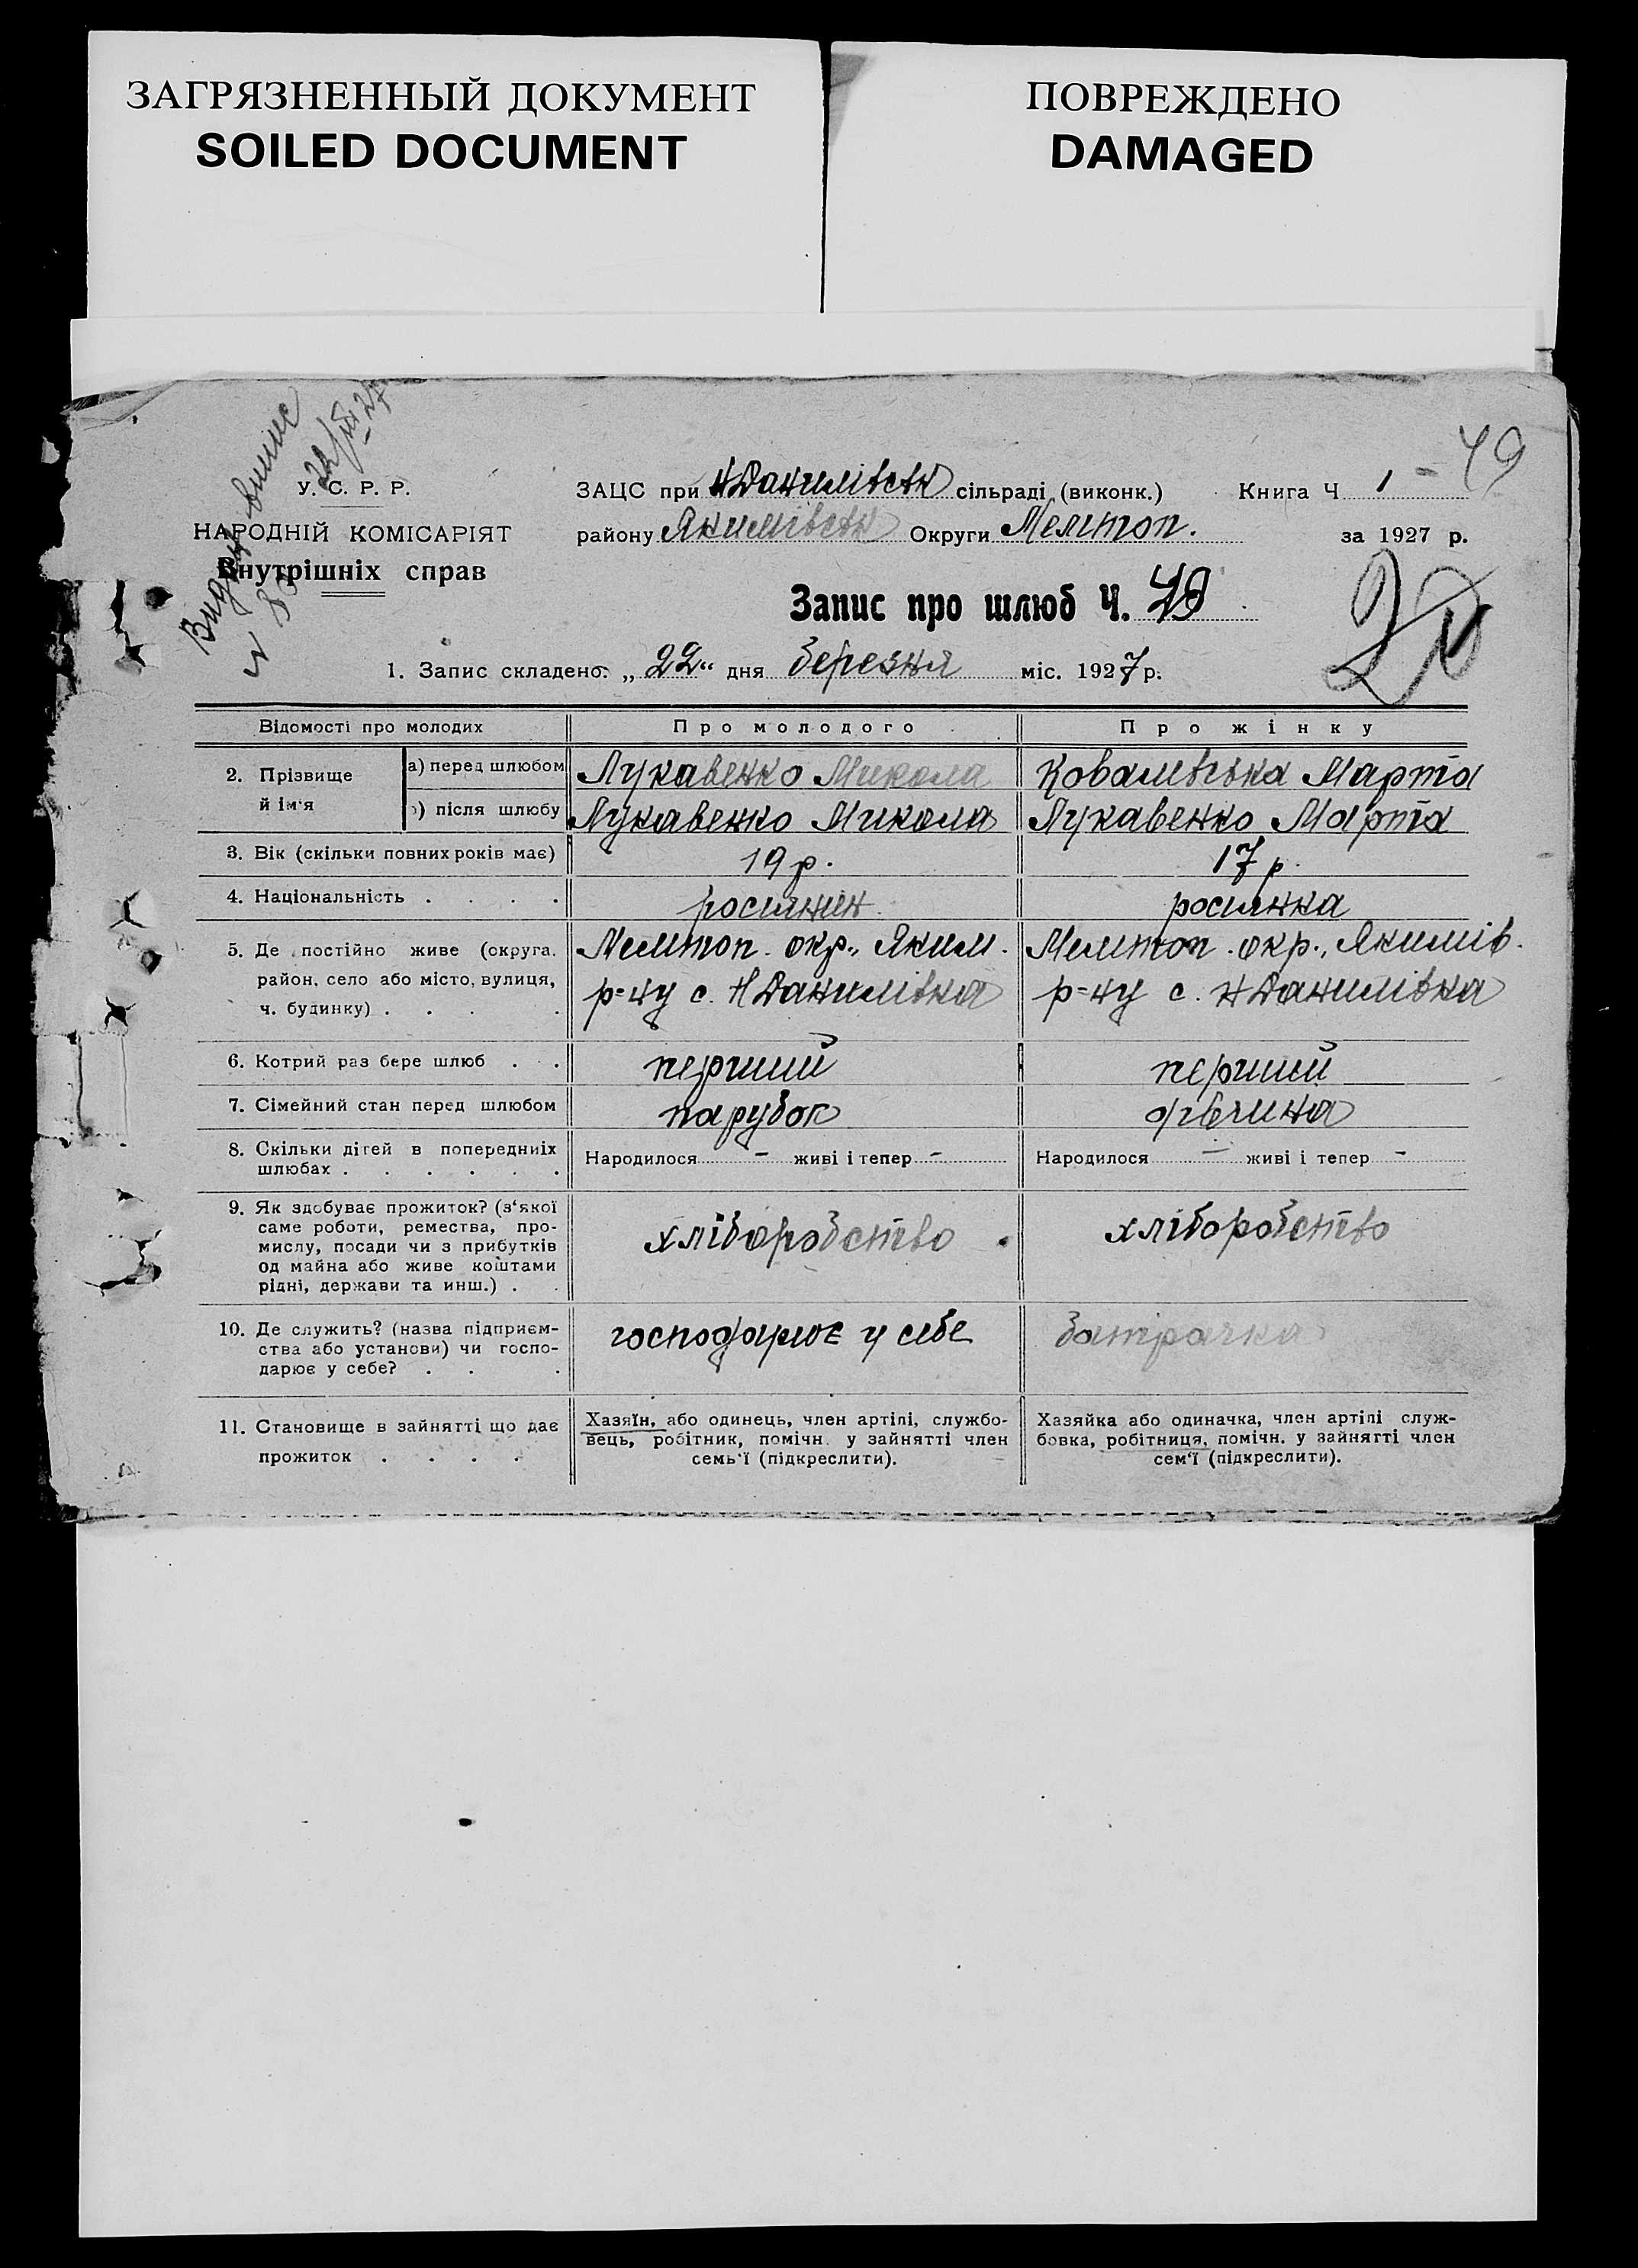 ЗАГРЯЗНЕННЫЙ ДОКУМЕНТ
SOILED DOCUMENT
ПОВРЕЖДЕНО
DAMAGED
Видано випис
22/III 27
У. С. Р. Р.
НАРОДНІЙ КОМІСАРІЯТ
Внутрішніх справ
ЗАЦС при Н Данилівськ сільраді (виконк.)
Книга Ч 1 - 49
району Якимівськ Округи Мелітоп.
за 1927 р.
Запис про шлюб Ч. 49
20
1. Запис складено: „ 22 “ дня березня міс. 1927 р.
Відомості про молодих
Про молодого
Про жінку
2. Прізвище й ім'я
а) перед шлюбом
Лукавенко Микола
Ковалівська Марта
) після шлюбу
Лукавенко Микола
Лукавенко Марта
3. Вік (скільки повних років має)
19 р.
17 р.
4. Національність . . . .
росиянин
росиянка
5. Де постійно живе (округа,
район, село або місто, вулиця,
ч. будинку) . . . .
Мелітоп. окр., Яким.
р=ну с. Н Данилівка
Мелітоп. окр., Якимів.
р=ну с. Н Данилівка
6. Котрий раз бере шлюб . .
перший
перший
7. Сімейний стан перед шлюбом
парубок
дівчина
8. Скільки дітей в попередніх
шлюбах . . . . . .
Народилося - живі і тепер -
Народилося - живі і тепер -
9. Як здобуває прожиток? (з'якої
саме роботи, ремества, про-
мислу, посади чи з прибутків
од майна або живе коштами
рідні, держави та инш.) . .
хліборобство
хліборобство
10. Де служить? (назва підприєм-
ства або установи) чи госпо-
дарює у себе? . . .
господарює у себе
батрачка
11. Становище в зайнятті що дає
прожиток . . . .
Хазяїн, або одинець, член артілі, службо-
вець, робітник, помічн. у зайнятті член
семь'ї (підкреслити).
Хазяйка або одиначка, член артілі служ-
бовка, робітниця, помічн. у зайнятті член
сем'ї (підкреслити).